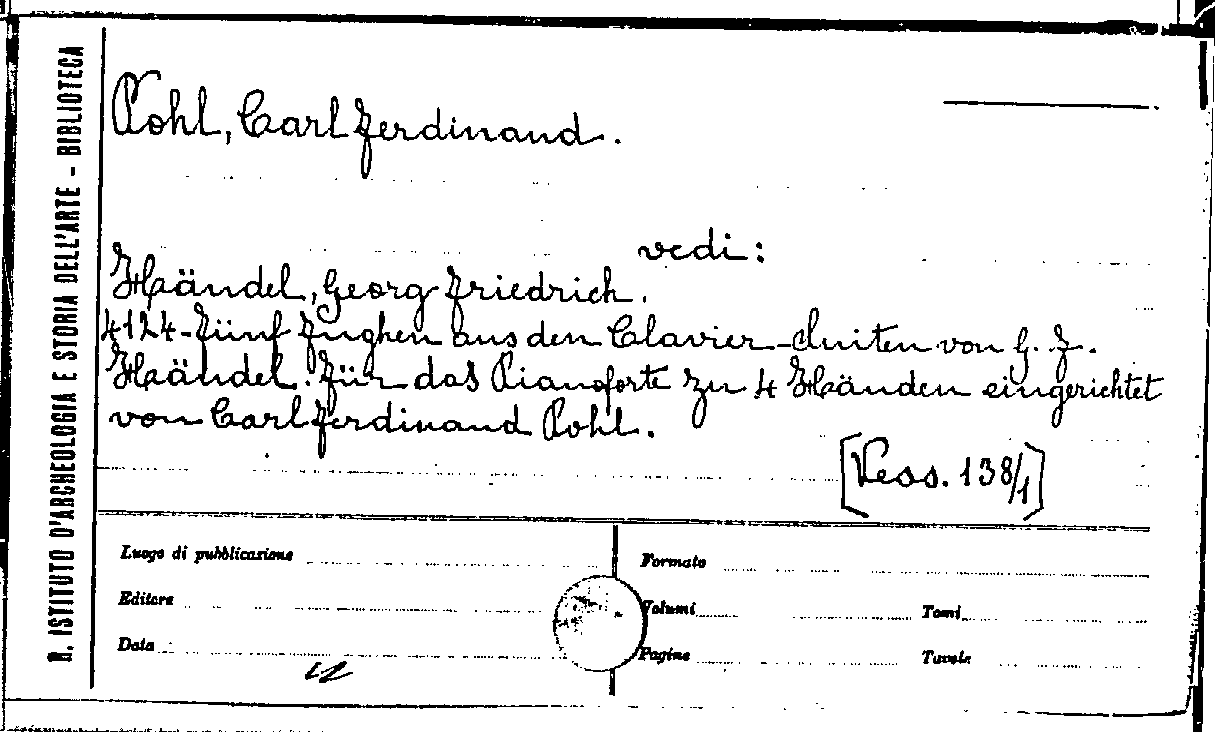 R. ISTITUTO D'ARCHEOLOGIA E STORIA DELL'ARTE - BIBLIOTECA
Pohl, Carl Ferdinand.
vedi:
Haändel, Georg Friedrich.
4124-Fünf Fughen aus den Clavier-Suiten von G. F.
Haändel. Für das Pianoforte zu 4 Haänden eingerichtet
von Carl Ferdinand Pohl.
[Vess. 138/1]
Luogo di pubblicazione
Formato
Editore
Volumi
Tomi
Data
Pagine
Tavole